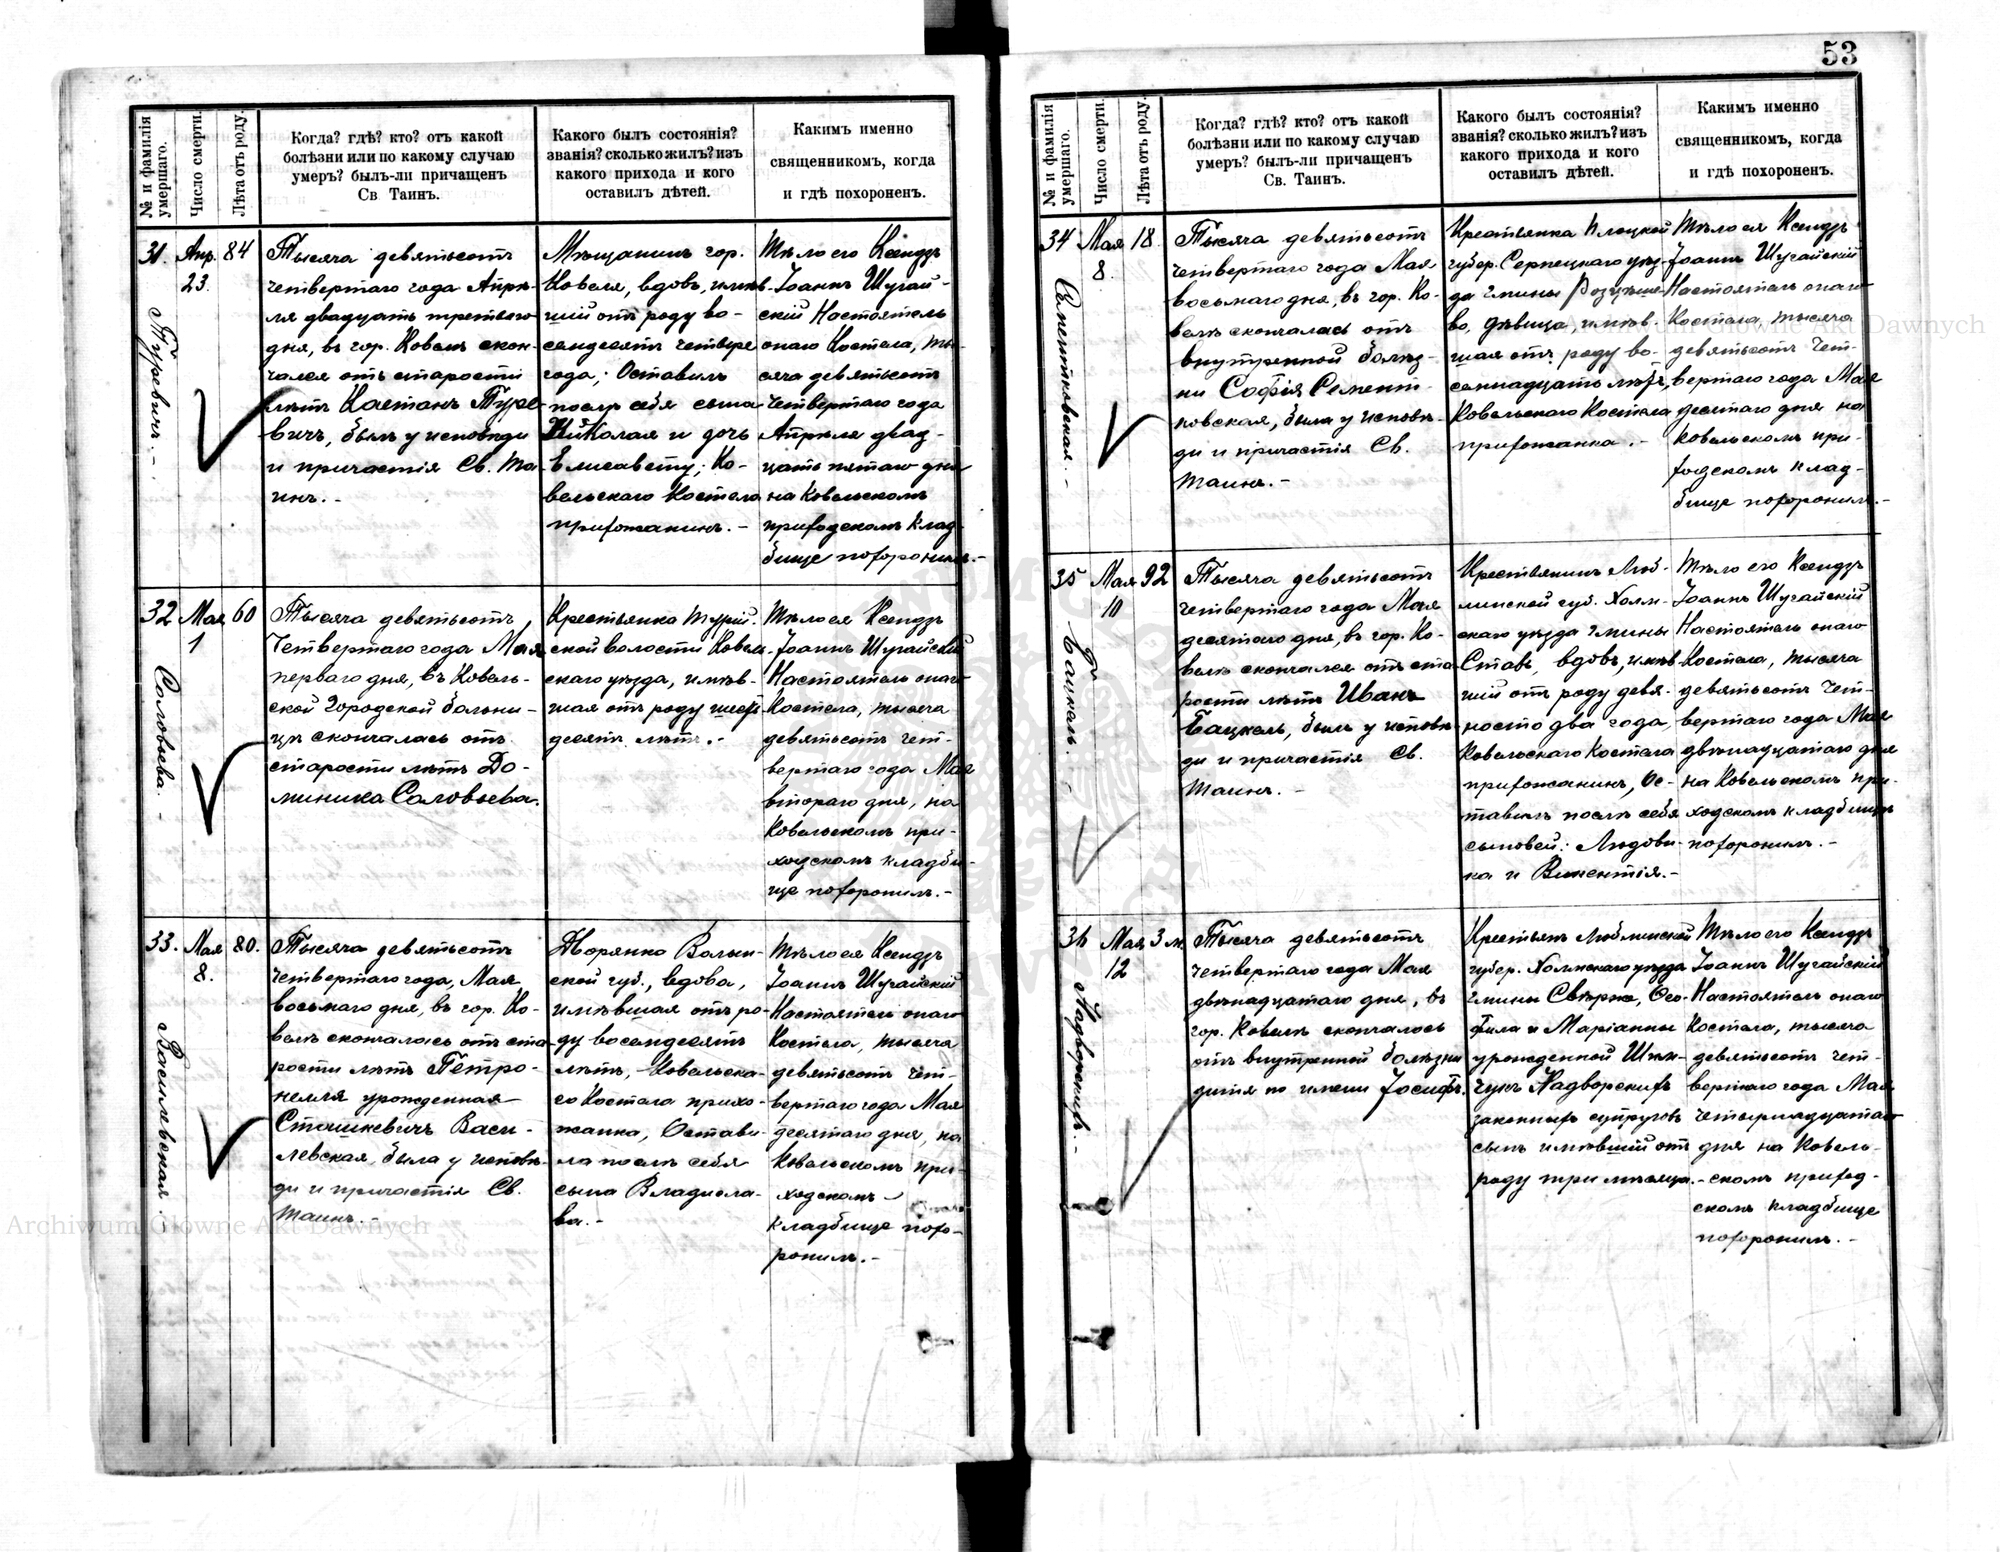 53
№ и фамилія умершаго.
Число смерти.
Лѣта отъ роду.
Когда? гдѣ? кто? отъ какой
болѣзни или по какому случаю
умеръ? былъ-ли причащенъ
Св Таинъ.
Какого былъ состоянія?
званія? сколько жилъ? изъ
какого прихода и кого
оставилъ дѣтей.
Какимъ именно
священникомъ, когда
и гдѣ похороненъ.
31.
Туревичъ.-
Апр.
23.
84
Тысяча девятьсотъ
четвертаго года Апрѣ-
ля двадцать третьяго
дня, въ гор. Ковелѣ скон-
чался отъ старости
лѣтъ Каетанъ Туре-
вичъ, былъ у исповѣди
и причастія Св. Та-
инъ.-
Мѣщанинъ гор.
Ковеля, вдовъ, имѣв-
шій отъ роду во-
семдесятъ четвере
года; Оставилъ
послѣ себя сына
Николая и дочь
Елисавету; Ко-
вельскаго Костела
прихожанинъ.-
Тѣло его Ксендзъ
Іоаннъ Шугай-
скій Настоятель
онаго Костела, ты-
сяча девятьсотъ
четвертаго года
Апрѣля двад-
цать пятаго дня
на Ковельскомъ
приходскомъ клад-
бище похоронилъ.-
32
Соловьева.-
Мая
1
60
Тысяча девятьсотъ
четвертаго года Мая
перваго дня, въ Ковель-
ской Городской больни-
цѣ скончалась отъ
старости лѣтъ До-
миника Соловьева.
Крестьянка Турій-
ской волости Ковель-
скаго уѣзда, имѣв-
шая отъ роду шесть-
десятъ лѣтъ.-
Тѣло ея Ксендзъ
Іоаннъ Шугайскій
Настоятель онаго
Костела, тысяча
девятьсотъ чет-
вертаго года Мая
втораго дня, на
Ковельскомъ при-
ходскомъ кладби-
ще похоронилъ.-
33.
Василевская.
Мая
8.
80.
Тысяча девятьсотъ
четвертаго года, Мая
восьмаго дня, въ гор. Ко-
велѣ скончалась отъ ста
рости лѣтъ Петро-
нелля урожденная
Сташкевичъ Васи-
левская, была у исповѣ-
ди и причастія Св.
Таинъ.-
Дворянка Волын-
ской губ., вдова,
имѣвшая отъ ро-
ду восемдесятъ
лѣтъ, Ковельска-
го Костела прихо-
жанка, Остави-
ла послѣ себя
сына Владисла-
ва.-
Тѣло ея Ксендзъ
Іоаннъ Шугайскій
Настоятель онаго
Костела, тысяча
девятьсотъ чет-
вертаго года Мая
десятаго дня, на
Ковельскомъ при-
ходскомъ
кладбище похо-
ронилъ.-
№ и фамилія умершаго.
Число смерти.
Лѣта отъ роду.
Когда? гдѣ? кто? отъ какой
болѣзни или по какому случаю
умеръ? былъ-ли причащенъ
Св. Таинъ.
Какого былъ состоянія?
званія? сколько жилъ? изъ
какого прихода и кого
оставилъ дѣтей.
Какимъ именно
священникомъ, когда
и гдѣ похороненъ.
34
Сементковская.-
Мая
8.
18.
Тысяча девятьсотъ
четвертаго года Мая
восьмаго дня, въ гор. Ко-
велѣ скончалась отъ
внутренной болѣз-
ни Софія Семент-
ковская, была у исповѣ-
ди и причастія Св.
Таинъ.-
Крестьянка Плоцкой
губер. Серпецкаго уѣз-
да гмины
во, дѣвица, имѣв-
шая отъ роду во-
семнадцать лѣтъ,
Ковельскаго Костела
прихожанка.-
Тѣло ея Ксендзъ
Іоаннъ Шугайскій
Настоятель онаго
Костела, тысяча
девятьсотъ чет-
вертаго года Мая
десятаго дня на
Ковельскомъ при-
ходскомъ клад-
бище похоронилъ.-
35
Бацкаль.-
Мая
10
92
Тысяча девятьсотъ
четвертаго года Мая
десятаго дня, въ гор. Ко-
велѣ скончался отъ ста
рости лѣтъ Иванъ
Бацкаль, былъ у исповѣ
ди и причастія Св.
Таинъ.-
Крестьянинъ Люб-
линской губ. Холм-
скаго уѣзда гмины
Ставъ, вдовъ, имѣв
шій отъ роду девя-
носто два года,
Ковельскаго Костела
прихожанинъ, Ос-
тавилъ послѣ себя
сыновей: Людови-
ка и Викентія.-
Тѣло его Ксендзъ
Іоаннъ Шугайскій
Настоятель онаго
Костела, тысяча
девятьсотъ чет-
вертаго года Мая
двѣнадцатаго дня
на Ковельскомъ при-
ходскомъ кладбищѣ
похоронилъ.-
36
Надворскихъ.-
Мая
12
3 м.
Тысяча девятьсотъ
четвертаго года Мая
двѣнадцатаго дня, въ
гор. Ковелѣ скончалось
отъ внутренной болѣзни
дитя по имени Іосифъ.
Крестьянъ Люблинской
губер. Холмскаго уѣзда
гмины Свержа, Ѳео-
фила и Маріанны
урожденной
Надворскихъ
законныхъ супруговъ
сынъ имѣвшій отъ
роду три мѣсяца.-
Тѣло его Ксендзъ
Іоаннъ Шугайскій
Настоятель онаго
Костела, тысяча
девятьсотъ чет-
вертаго года Мая
четырнадцатаго
дня на Ковель-
скомъ приход-
скомъ кладбище
похоронилъ.-
Archiwum Główne Akt Dawnych
Archiwum Główne Akt Dawnych